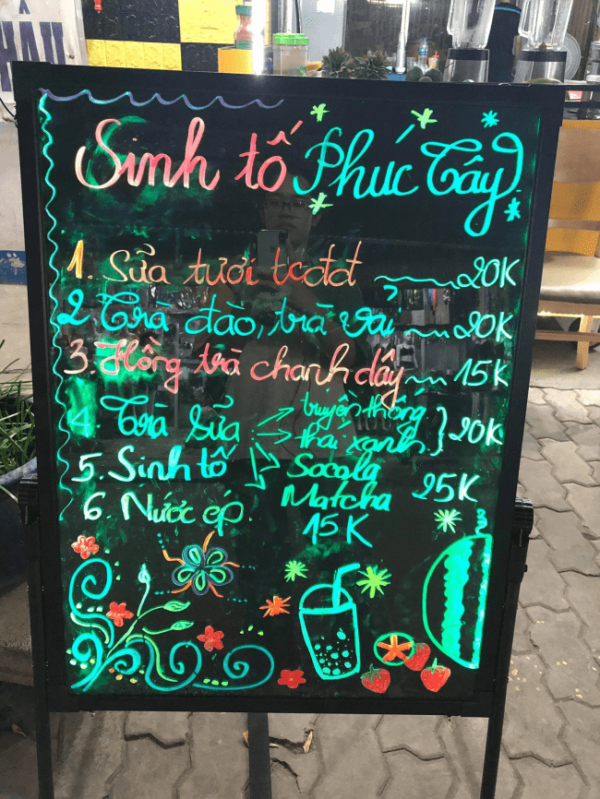 Sinh tố Phúc Tây
1. Sữa tươi tcđđ 20K
2. Trà đào, trà vải 20K
3. Hồng trà chanh dây 15K
4. Trà sữa truyền thống
thái xanh } 20K
5. Sinh tố Socola
Matcha 25K
6. Nước ép. 15K